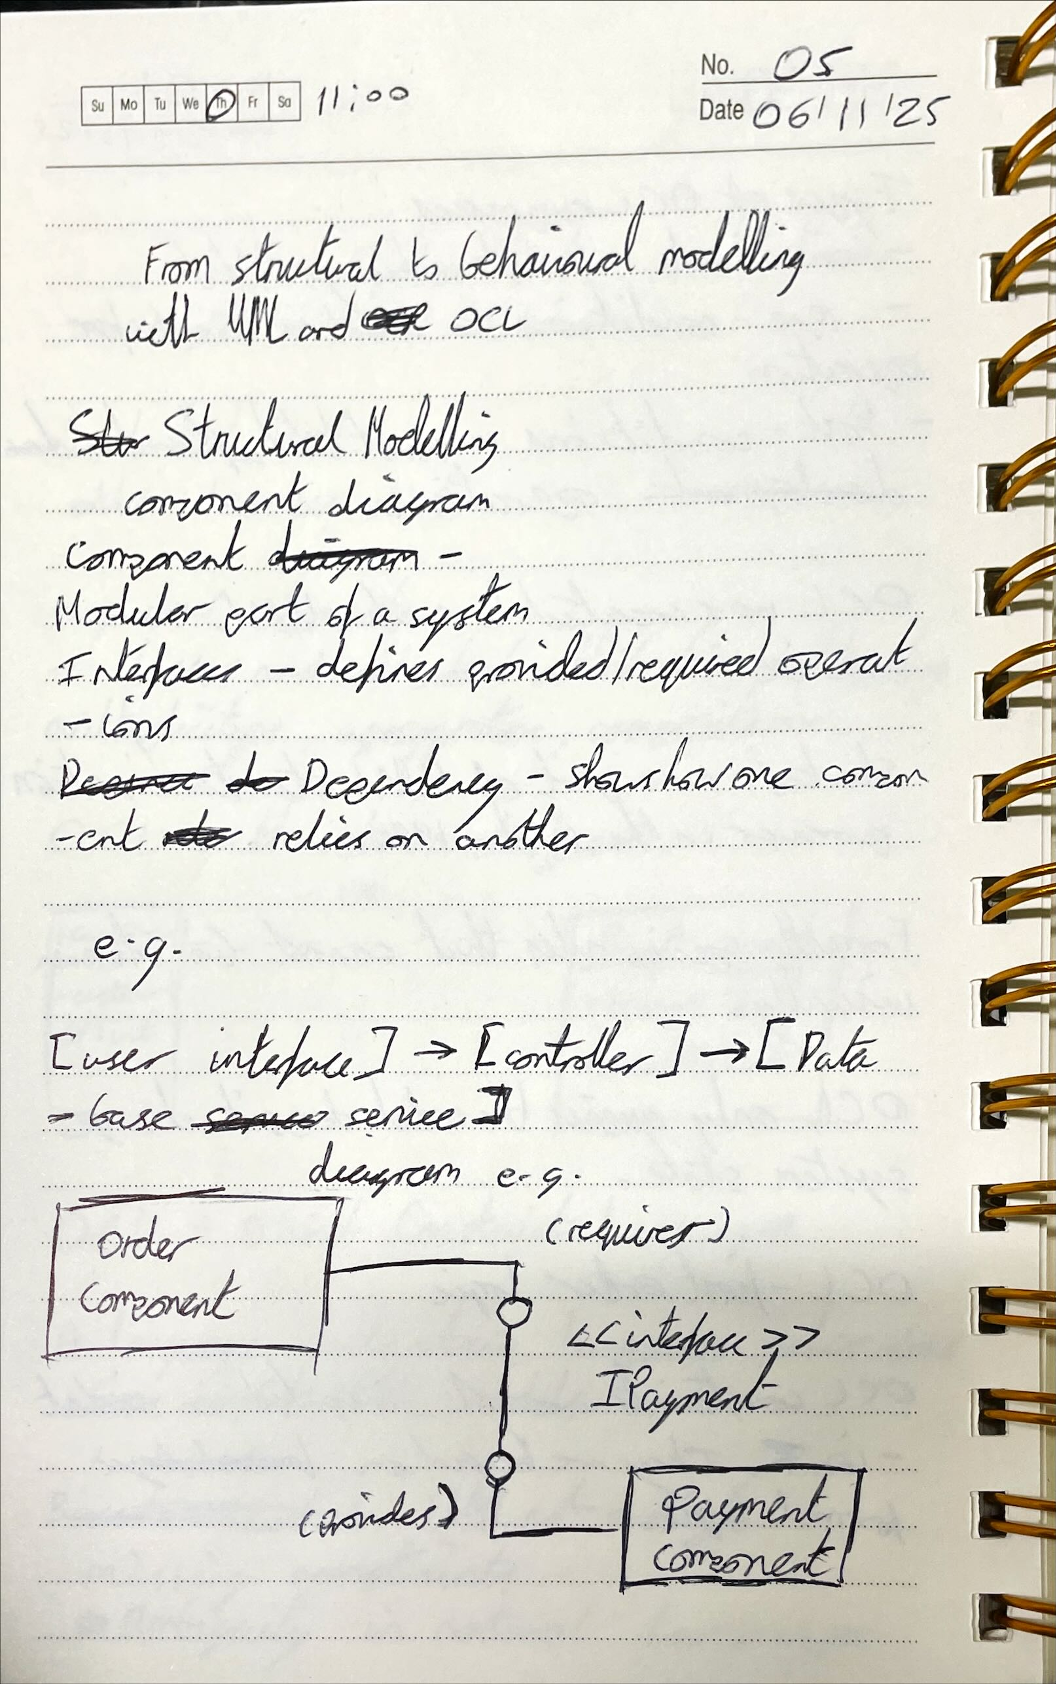 No. 05
Su Mo Tu We Th Fr Sa 11:00
Date 06/11/25
From structural to behavioural modelling
with UML and OCL
Str Structural Modelling
component diagram
Component diagram -
Modular part of a system
Interfaces - defines provided/required operat
-ions
Dependency - shows how one compon
-ent relies on another
e.g.
[user interface] → [controller] → [Data
-base service]
diagram e.g.
(requires)
Order
Component
<<interface>>
IPayment
(provides)
Payment
component